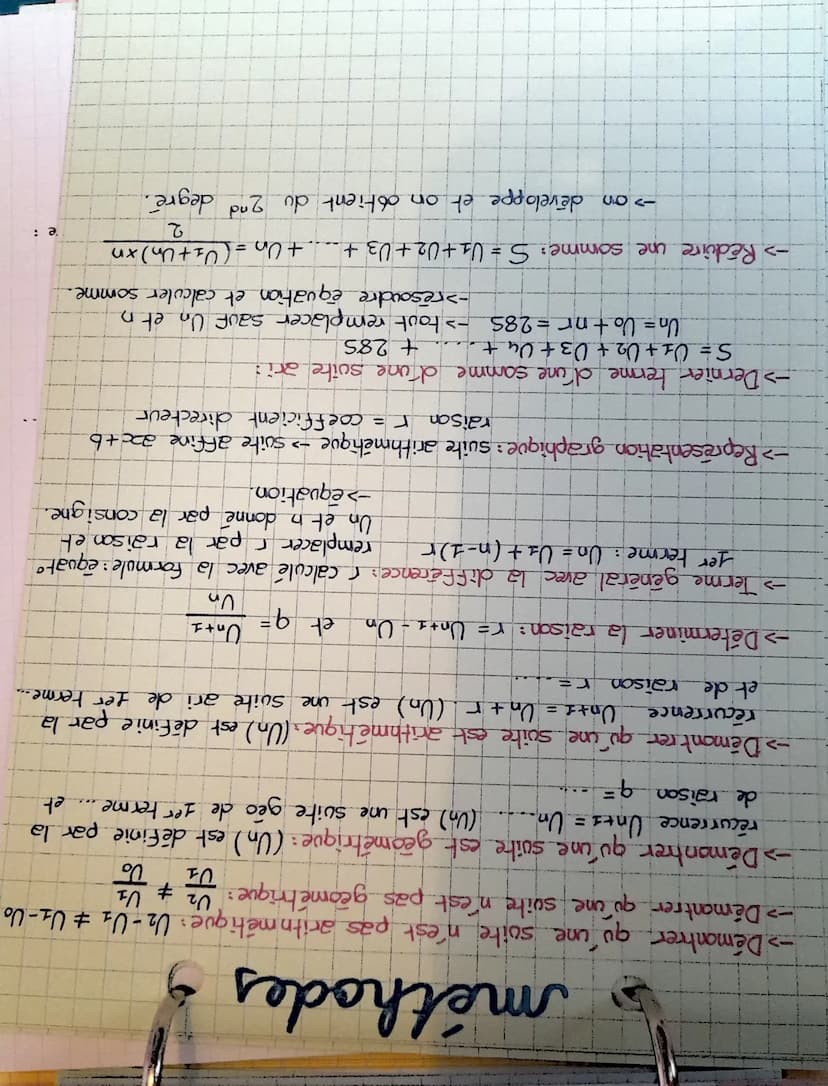 méthodes
-> Démontrer qu'une suite n'est pas arithmétique: U2-U1 ≠ U1-U0
-> Démontrer qu'une suite n'est pas géométrique: U2/U1 ≠ U1/U0
-> Démontrer qu'une suite est géométrique: (Un) est définie par la
récurrence Un+1 = Un..... (Un) est une suite géo de 1er terme ... et
de raison q = ....
-> Démontrer qu'une suite est arithmétique: (Un) est définie par la
récurrence Un+1 = Un + r. (Un) est une suite ari de 1er terme...
et de raison r = .....
-> Déterminer la raison: r = Un+1 - Un et q = Un+1/Un
-> Terme général avec la différence: r calculé avec la formule: équat°
1er terme: Un = U1 + (n-1)r remplacer r par la raison et
Un et n donné par la consigne.
-> équation.
-> Représentation graphique: suite arithmétique -> suite affine ax+b
raison r = coefficient directeur
-> Dernier terme d'une somme d'une suite ari:
S = U1 + U2 + U3 + U4 + ..... + 285
Un = U0 + nr = 285 -> tout remplacer sauf Un et n
-> résoudre équation et calculer somme.
-> Réduire une somme: S = U1+U2+U3 + ..... + Un = (U1+Un)×n/2
-> on développe et on obtient du 2nd degré.
e :